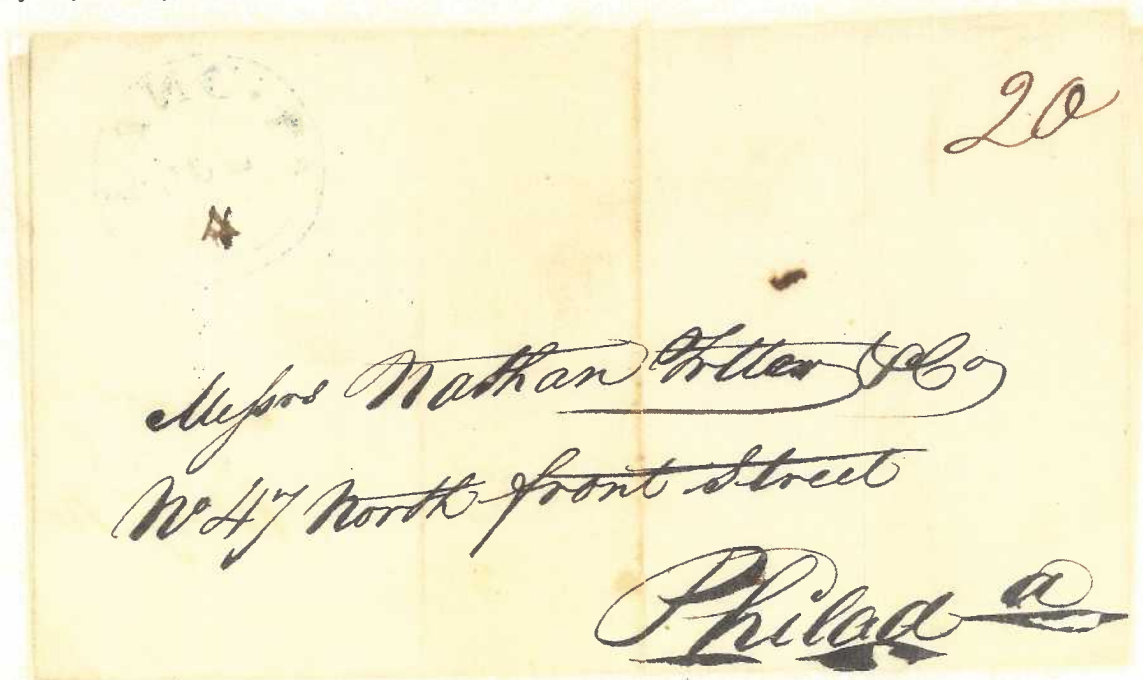 20
Messrs Nathan Trotter & Co
No 47 North front Street
Philad a